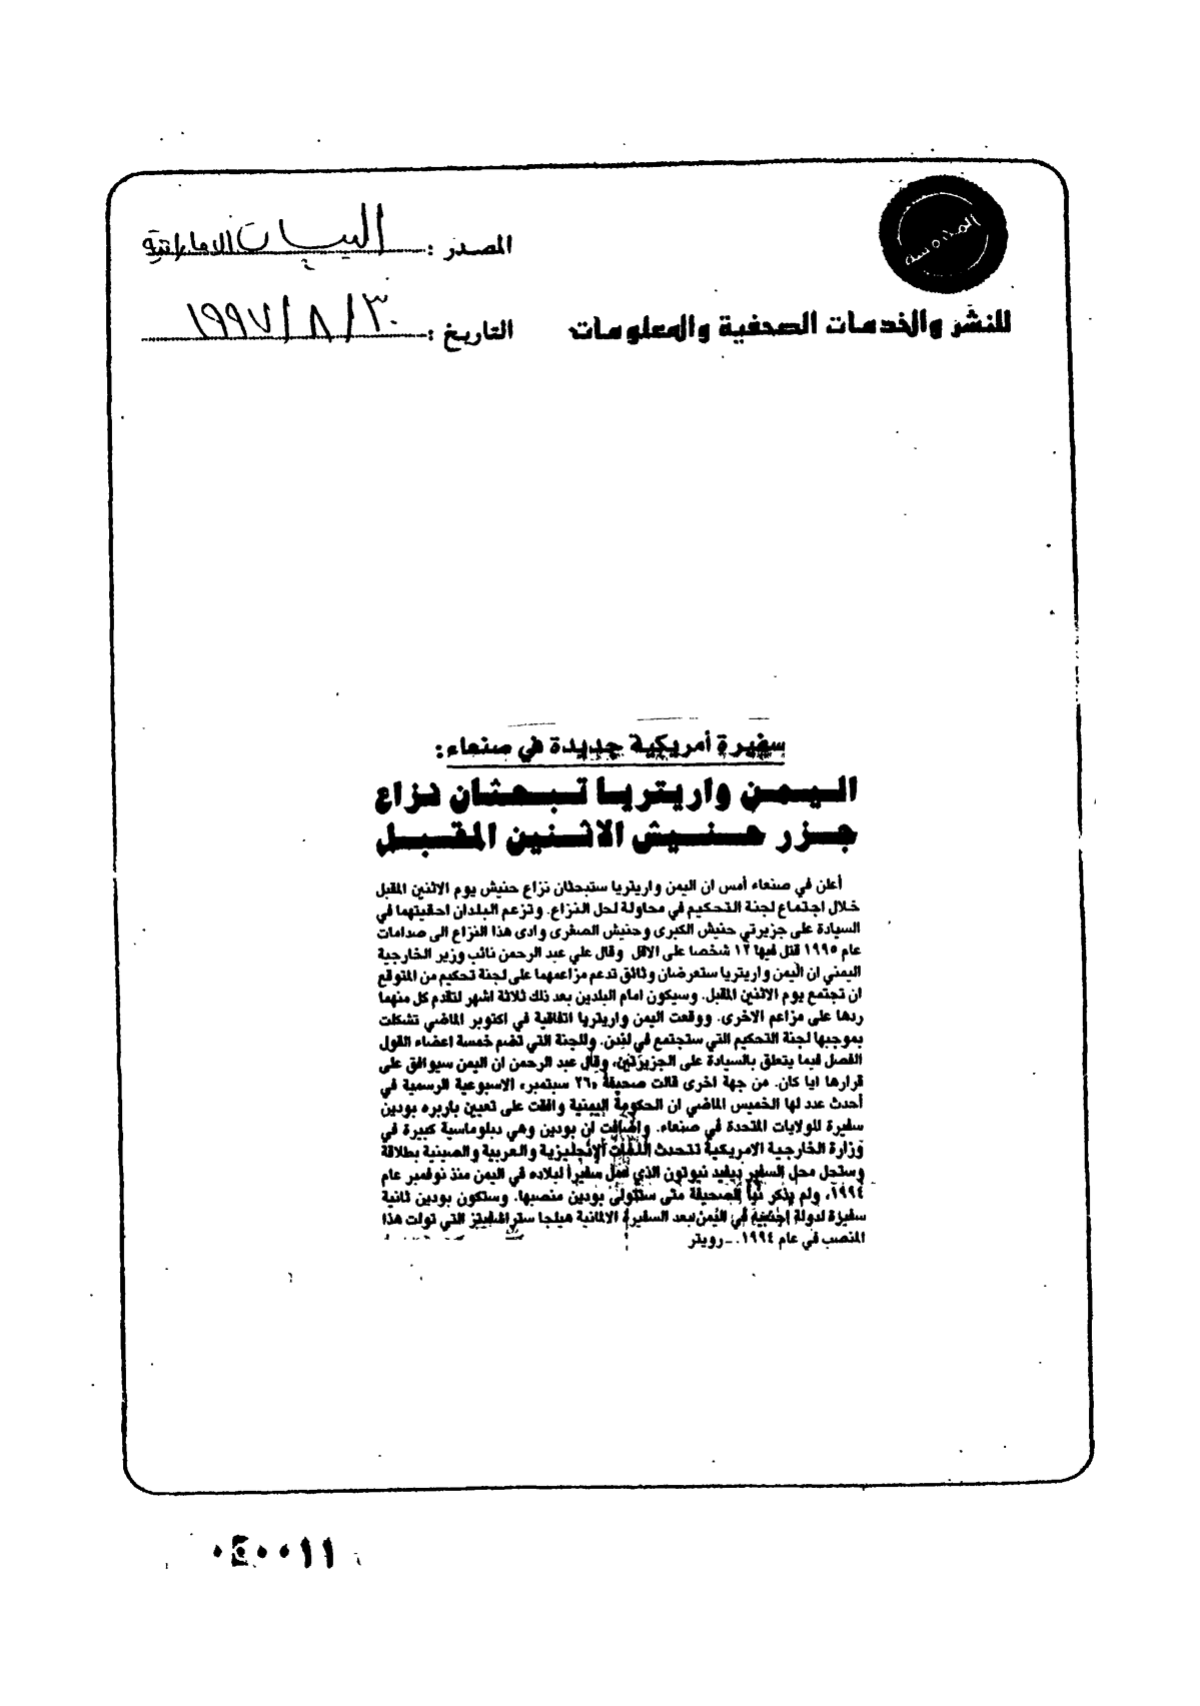 المصدر : البيان الاماراتية
للنشر والخدمات الصحفية والمعلومات
التاريخ : ٣٠/ ٨/ ١٩٩٧
سفيرة أمريكية جديدة في صنعاء:
اليمن واريتريا تبحثان نزاع
جزر حنيش الاثنين المقبل
أعلن في صنعاء أمس ان اليمن واريتريا ستبحثان نزاع حنيش يوم الاثنين المقبل
خلال اجتماع لجنة التحكيم في محاولة لحل النزاع. وتزعم البلدان احقيتهما في
السيادة على جزيرتي حنيش الكبرى وحنيش الصغرى وادى هذا النزاع الى صدامات
عام ١٩٩٥ قتل فيها ١٢ شخصا على الاقل وقال علي عبد الرحمن نائب وزير الخارجية
اليمني ان اليمن واريتريا ستعرضان وثائق تدعم مزاعمهما على لجنة تحكيم من المتوقع
ان تجتمع يوم الاثنين المقبل. وسيكون امام البلدين بعد ذلك ثلاثة اشهر لتقدم كل منهما
ردها على مزاعم الاخرى. ووقعت اليمن واريتريا اتفاقية في اكتوبر الماضي تشكلت
بموجبها لجنة التحكيم التي ستجتمع في لندن. وللجنة التي تضم خمسة اعضاء القول
الفصل فيما يتعلق بالسيادة على الجزيرتين، وقال عبد الرحمن ان اليمن سيوافق على
قرارها ايا كان. من جهة اخرى قالت صحيفة «٢٦ سبتمبر» الاسبوعية الرسمية في
أحدث عدد لها الخميس الماضي ان الحكومة اليمنية وافقت على تعيين باربره بودين
سفيرة للولايات المتحدة في صنعاء. واضافت ان بودين وهي دبلوماسية كبيرة في
وزارة الخارجية الامريكية تتحدث اللغات الإنجليزية والعربية والصينية بطلاقة
وستحل محل السفير ديفيد نيوتون الذي عمل سفيراً لبلاده في اليمن منذ نوفمبر عام
١٩٩٤، ولم يذكر الصحيفة متى ستتولى بودين منصبها. وستكون بودين ثانية
سفيرة لدولة اجنبية في اليمن بعد السفيرة الالمانية هيلجا التي تولت هذا
المنصب في عام ١٩٩٤. ــ رويتر